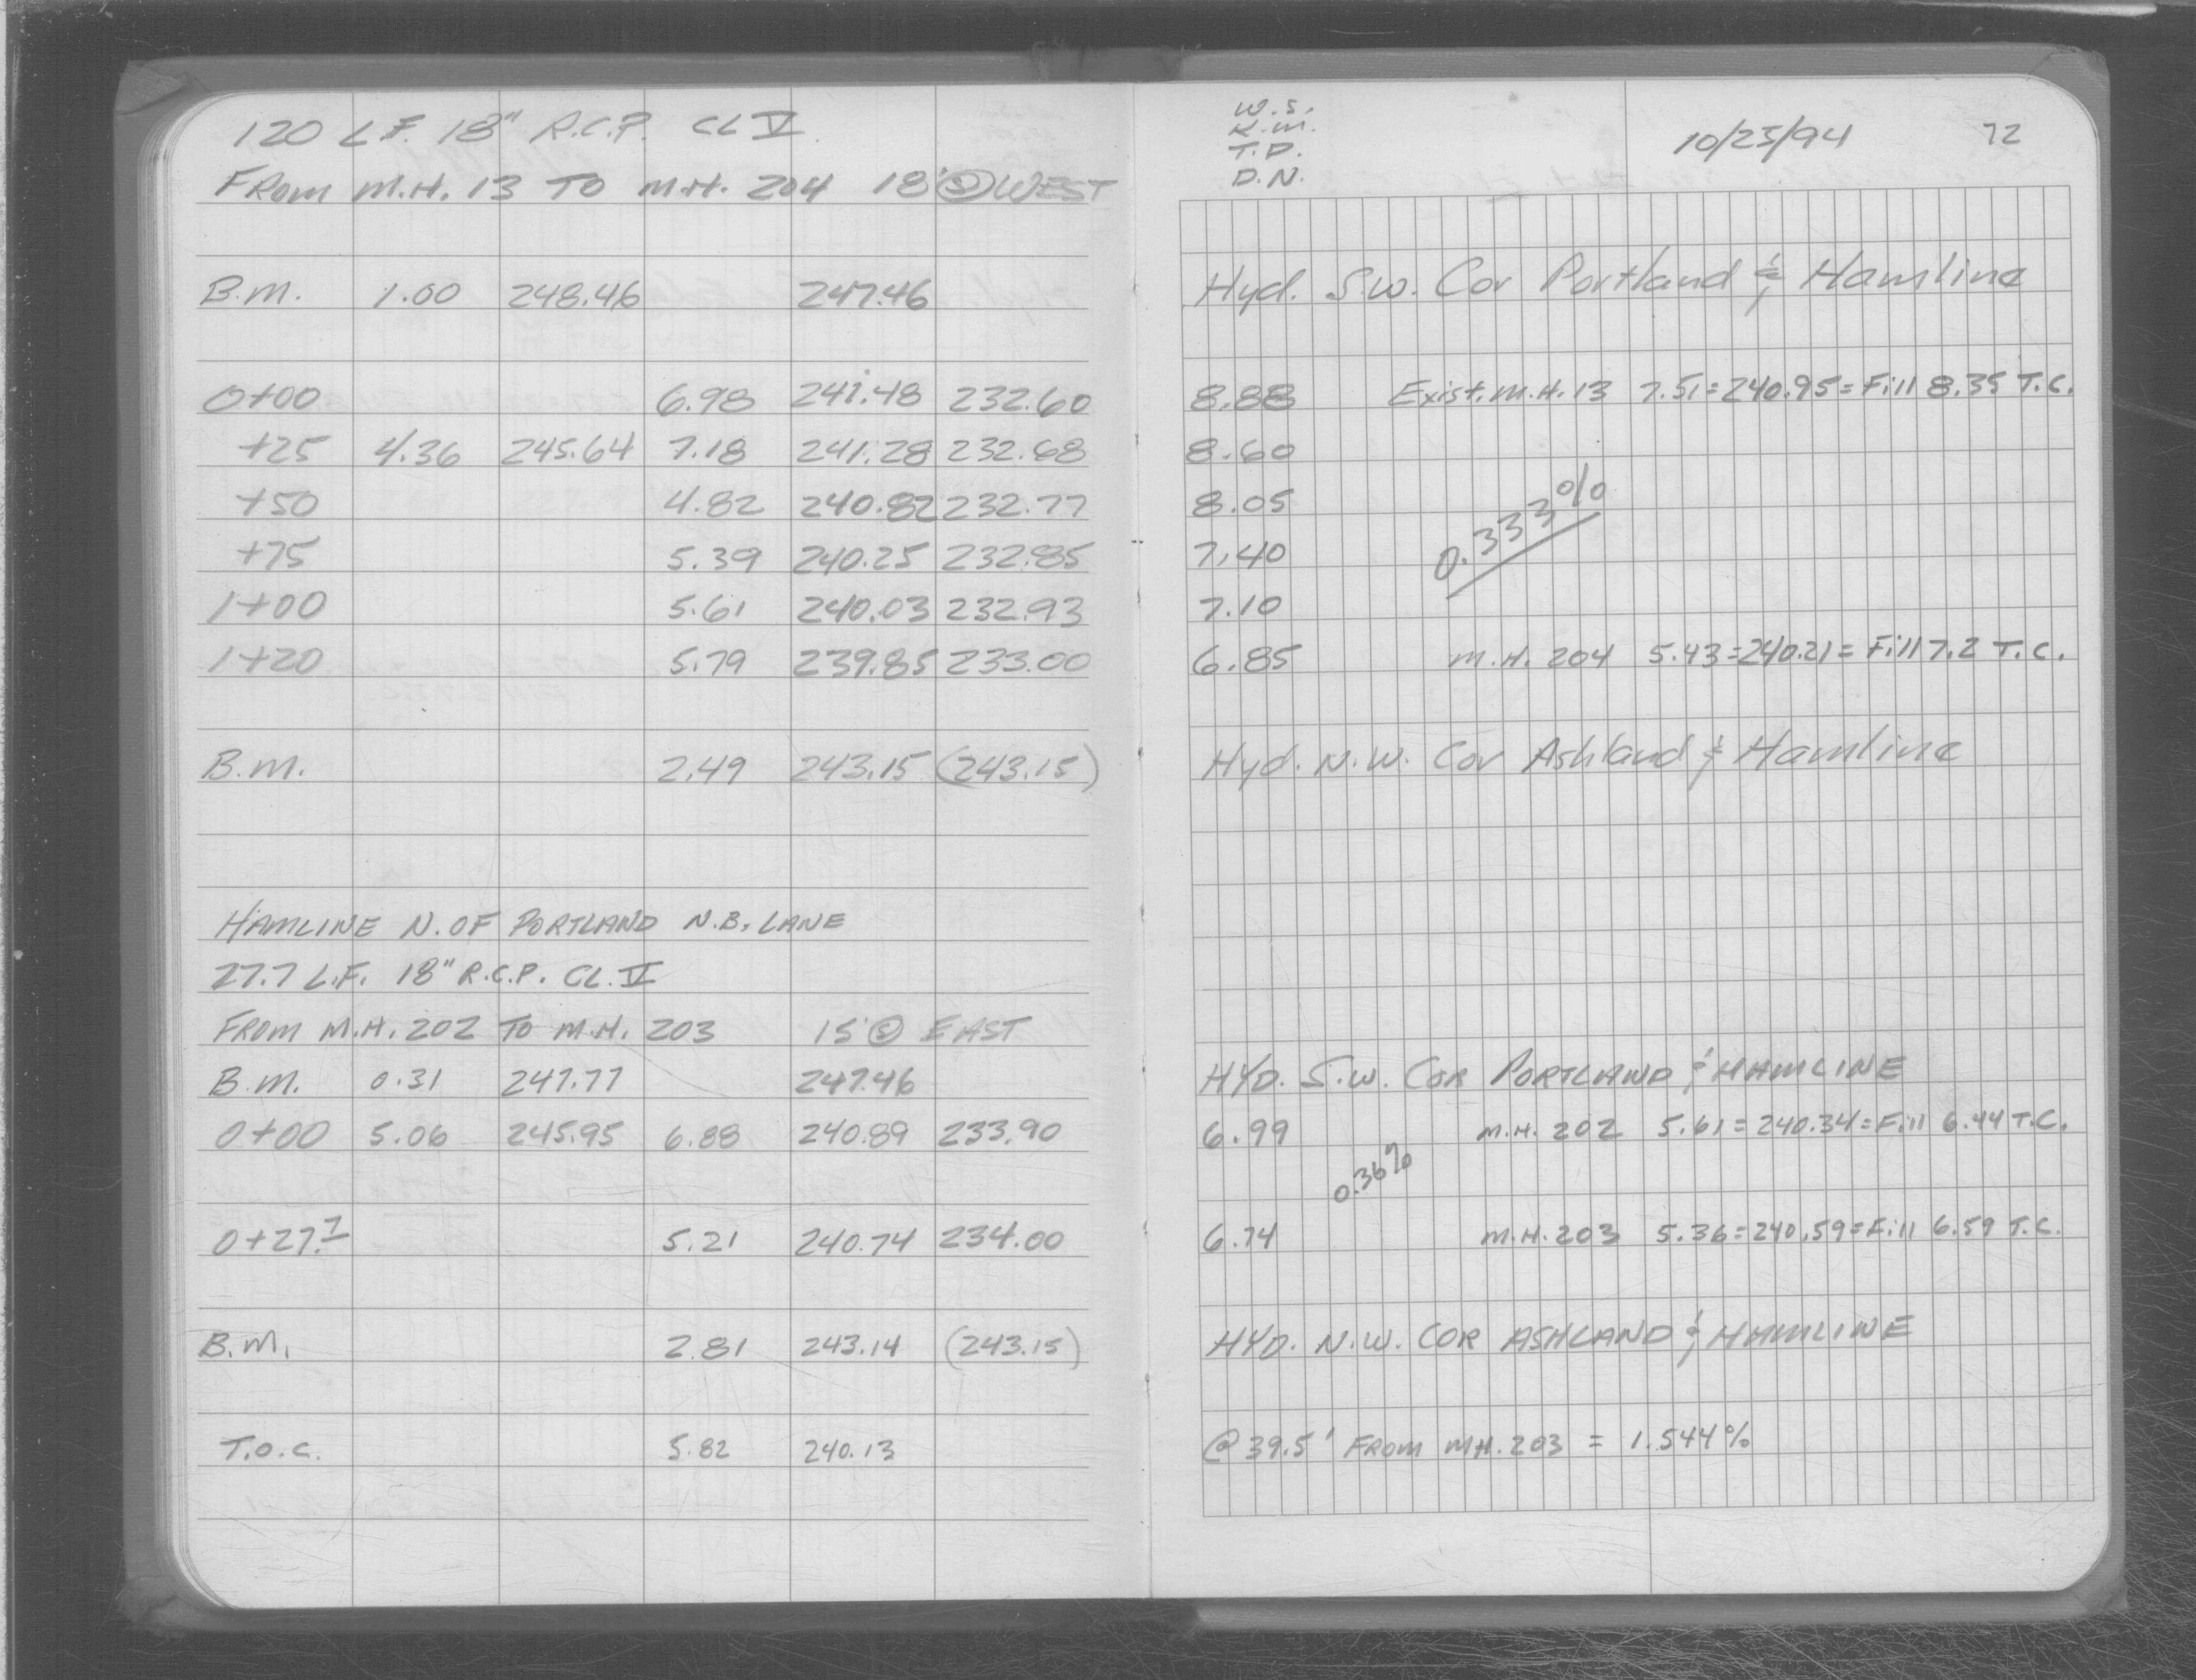 120 L.F. 18" R.C.P. CL V
FROM M.H. 13 TO M.H. 204 18' @ WEST
B.M. 1.00 248.46 247.46
0+00 6.98 241.48 232.60
+25 4.36 245.64 7.18 241.28 232.68
+50 4.82 240.82 232.77
+75 5.39 240.25 232.85
1+00 5.61 240.03 232.93
1+20 5.79 239.85 233.00
B.M. 2.49 243.15 (243.15)
HAMLINE N. OF PORTLAND N.B. LANE
27.7 L.F. 18" R.C.P. CL. V
FROM M.H. 202 TO M.H. 203 15' @ EAST
B.M. 0.31 247.77 247.46
0+00 5.06 245.95 6.88 240.89 233.90
0+27.7 5.21 240.74 234.00
B.M. 2.81 243.14 (243.15)
T.O.C. 5.82 240.13
W.S.
K.M.
T.D.
D.N.
10/25/94 72
Hyd. S.W. Cor Portland & Hamline
8.88 Exist. M.H. 13 7.51=240.95=Fill 8.35 T.C.
8.60
8.05
0.333%
7.40
7.10
6.85 M.H. 204 5.43=240.21=Fill 7.2 T.C.
Hyd. N.W. Cor Ashland & Hamline
HYD. S.W. COR PORTLAND & HAMLINE
6.99 M.H. 202 5.61=240.34=Fill 6.44 T.C.
0.36%
6.74 M.H. 203 5.36=240.59=Fill 6.59 T.C.
HYD. N.W. COR ASHLAND & HAMLINE
@ 39.5' FROM MH. 203 = 1.544%